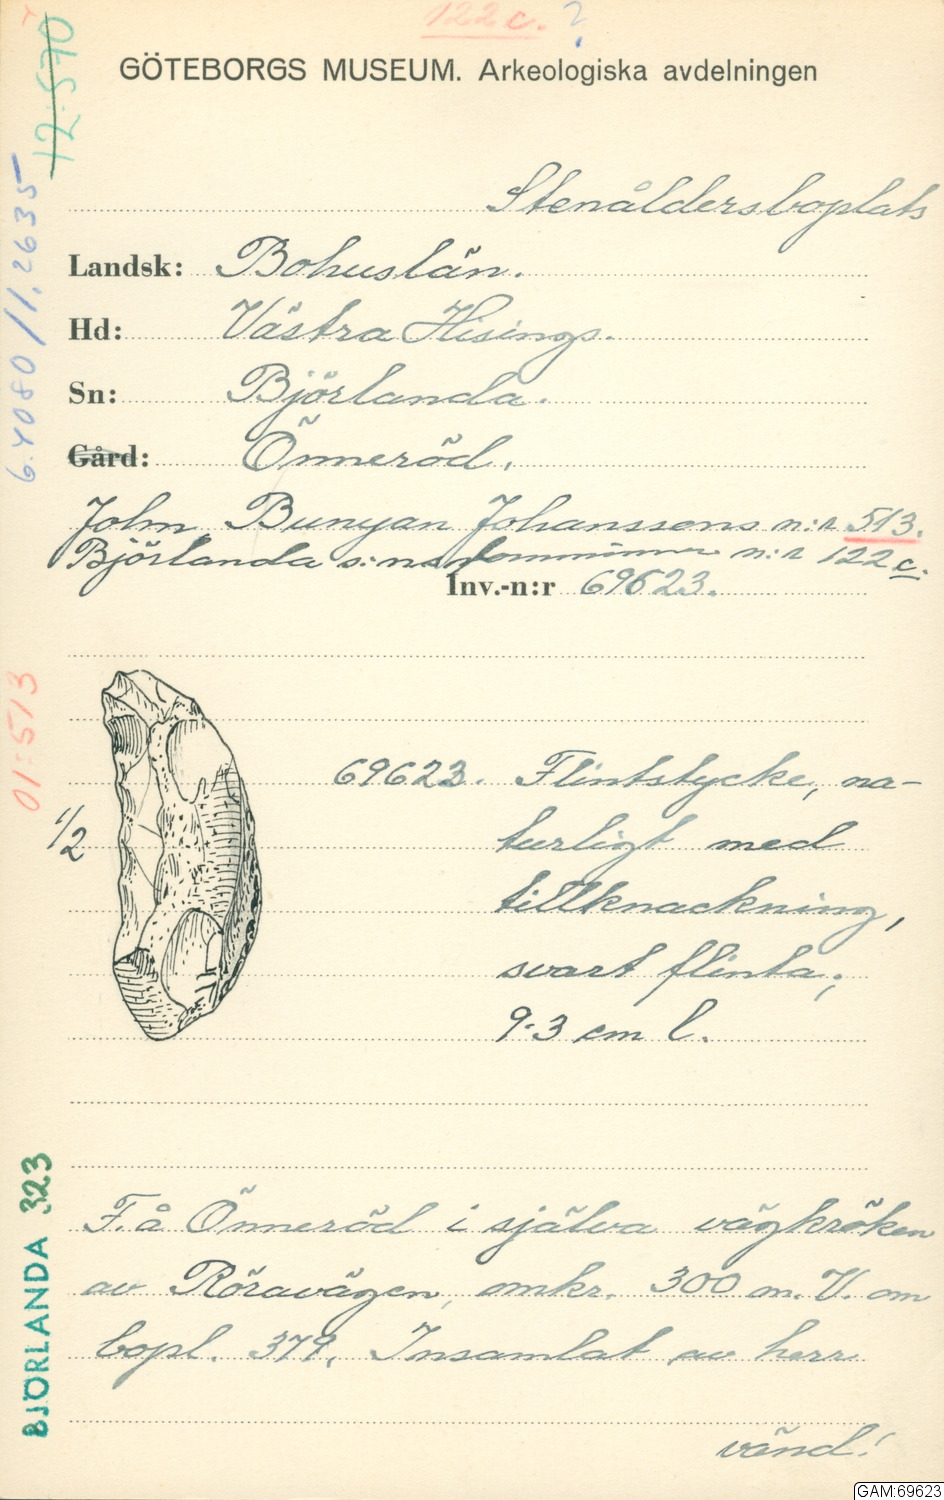 122 c. ?
12:570
GÖTEBORGS MUSEUM. Arkeologiska avdelningen
Stenåldersboplats
Landsk: Bohuslän.
Hd: Västra Hisings.
Sn: Björlanda.
Gård: Önneröd.
John Bunyan Johanssons n:r 513.
Björlanda s:ns fornminne n:r 122 c.
Inv.-n:r 69623.
6.4080/1.2635
01:513
1/2
69623. Flintstycke, na-
turligt med
tillknackning,
svart flinta;
9.3 cm l.
BJÖRLANDA 323
F. å Önneröd i själva vägkröken
av Röravägen, omkr. 300 m. V. om
bopl. 379. Insamlat av herr
vänd!
GAM:69623